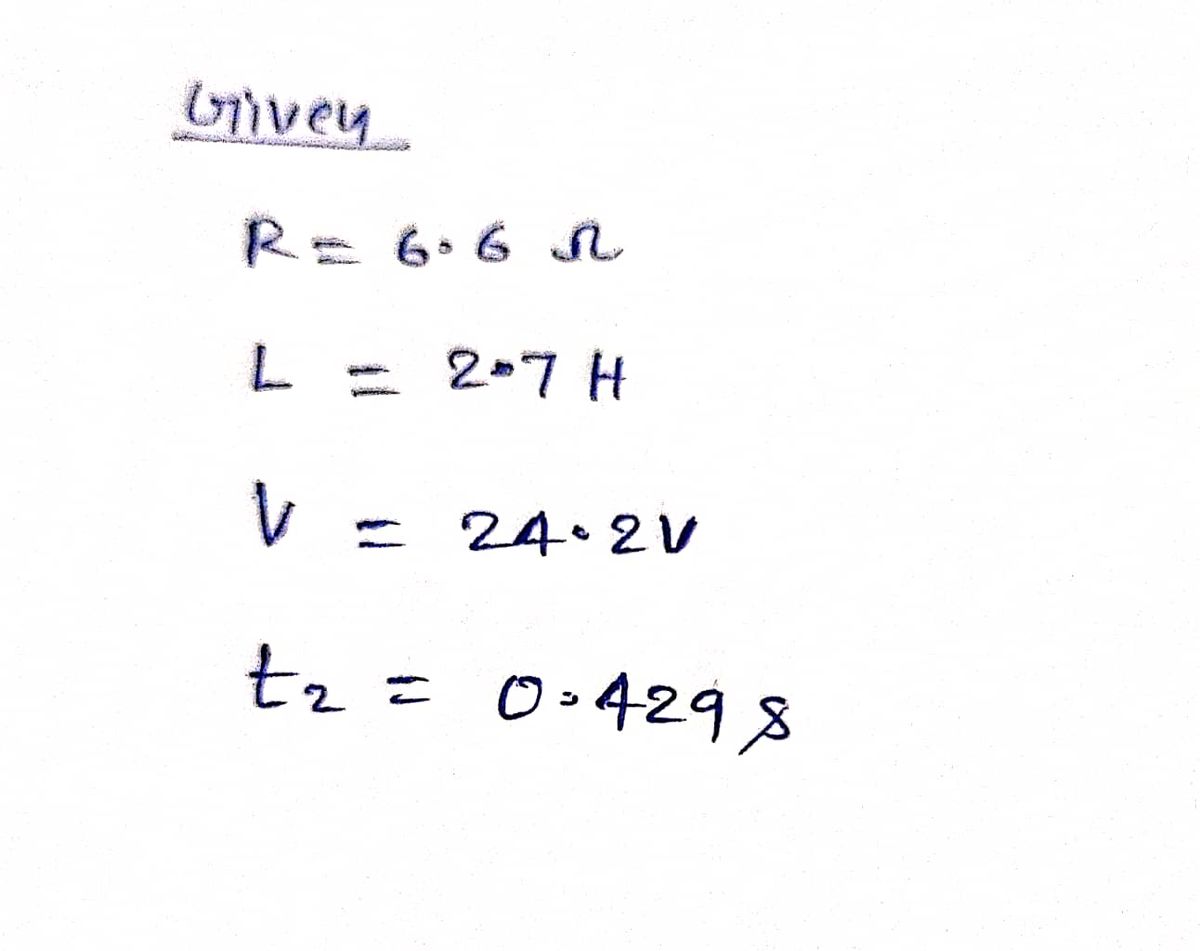 Given
R = 6.6 Ω
L = 2.7 H
V = 24.2 V
t₂ = 0.429 s